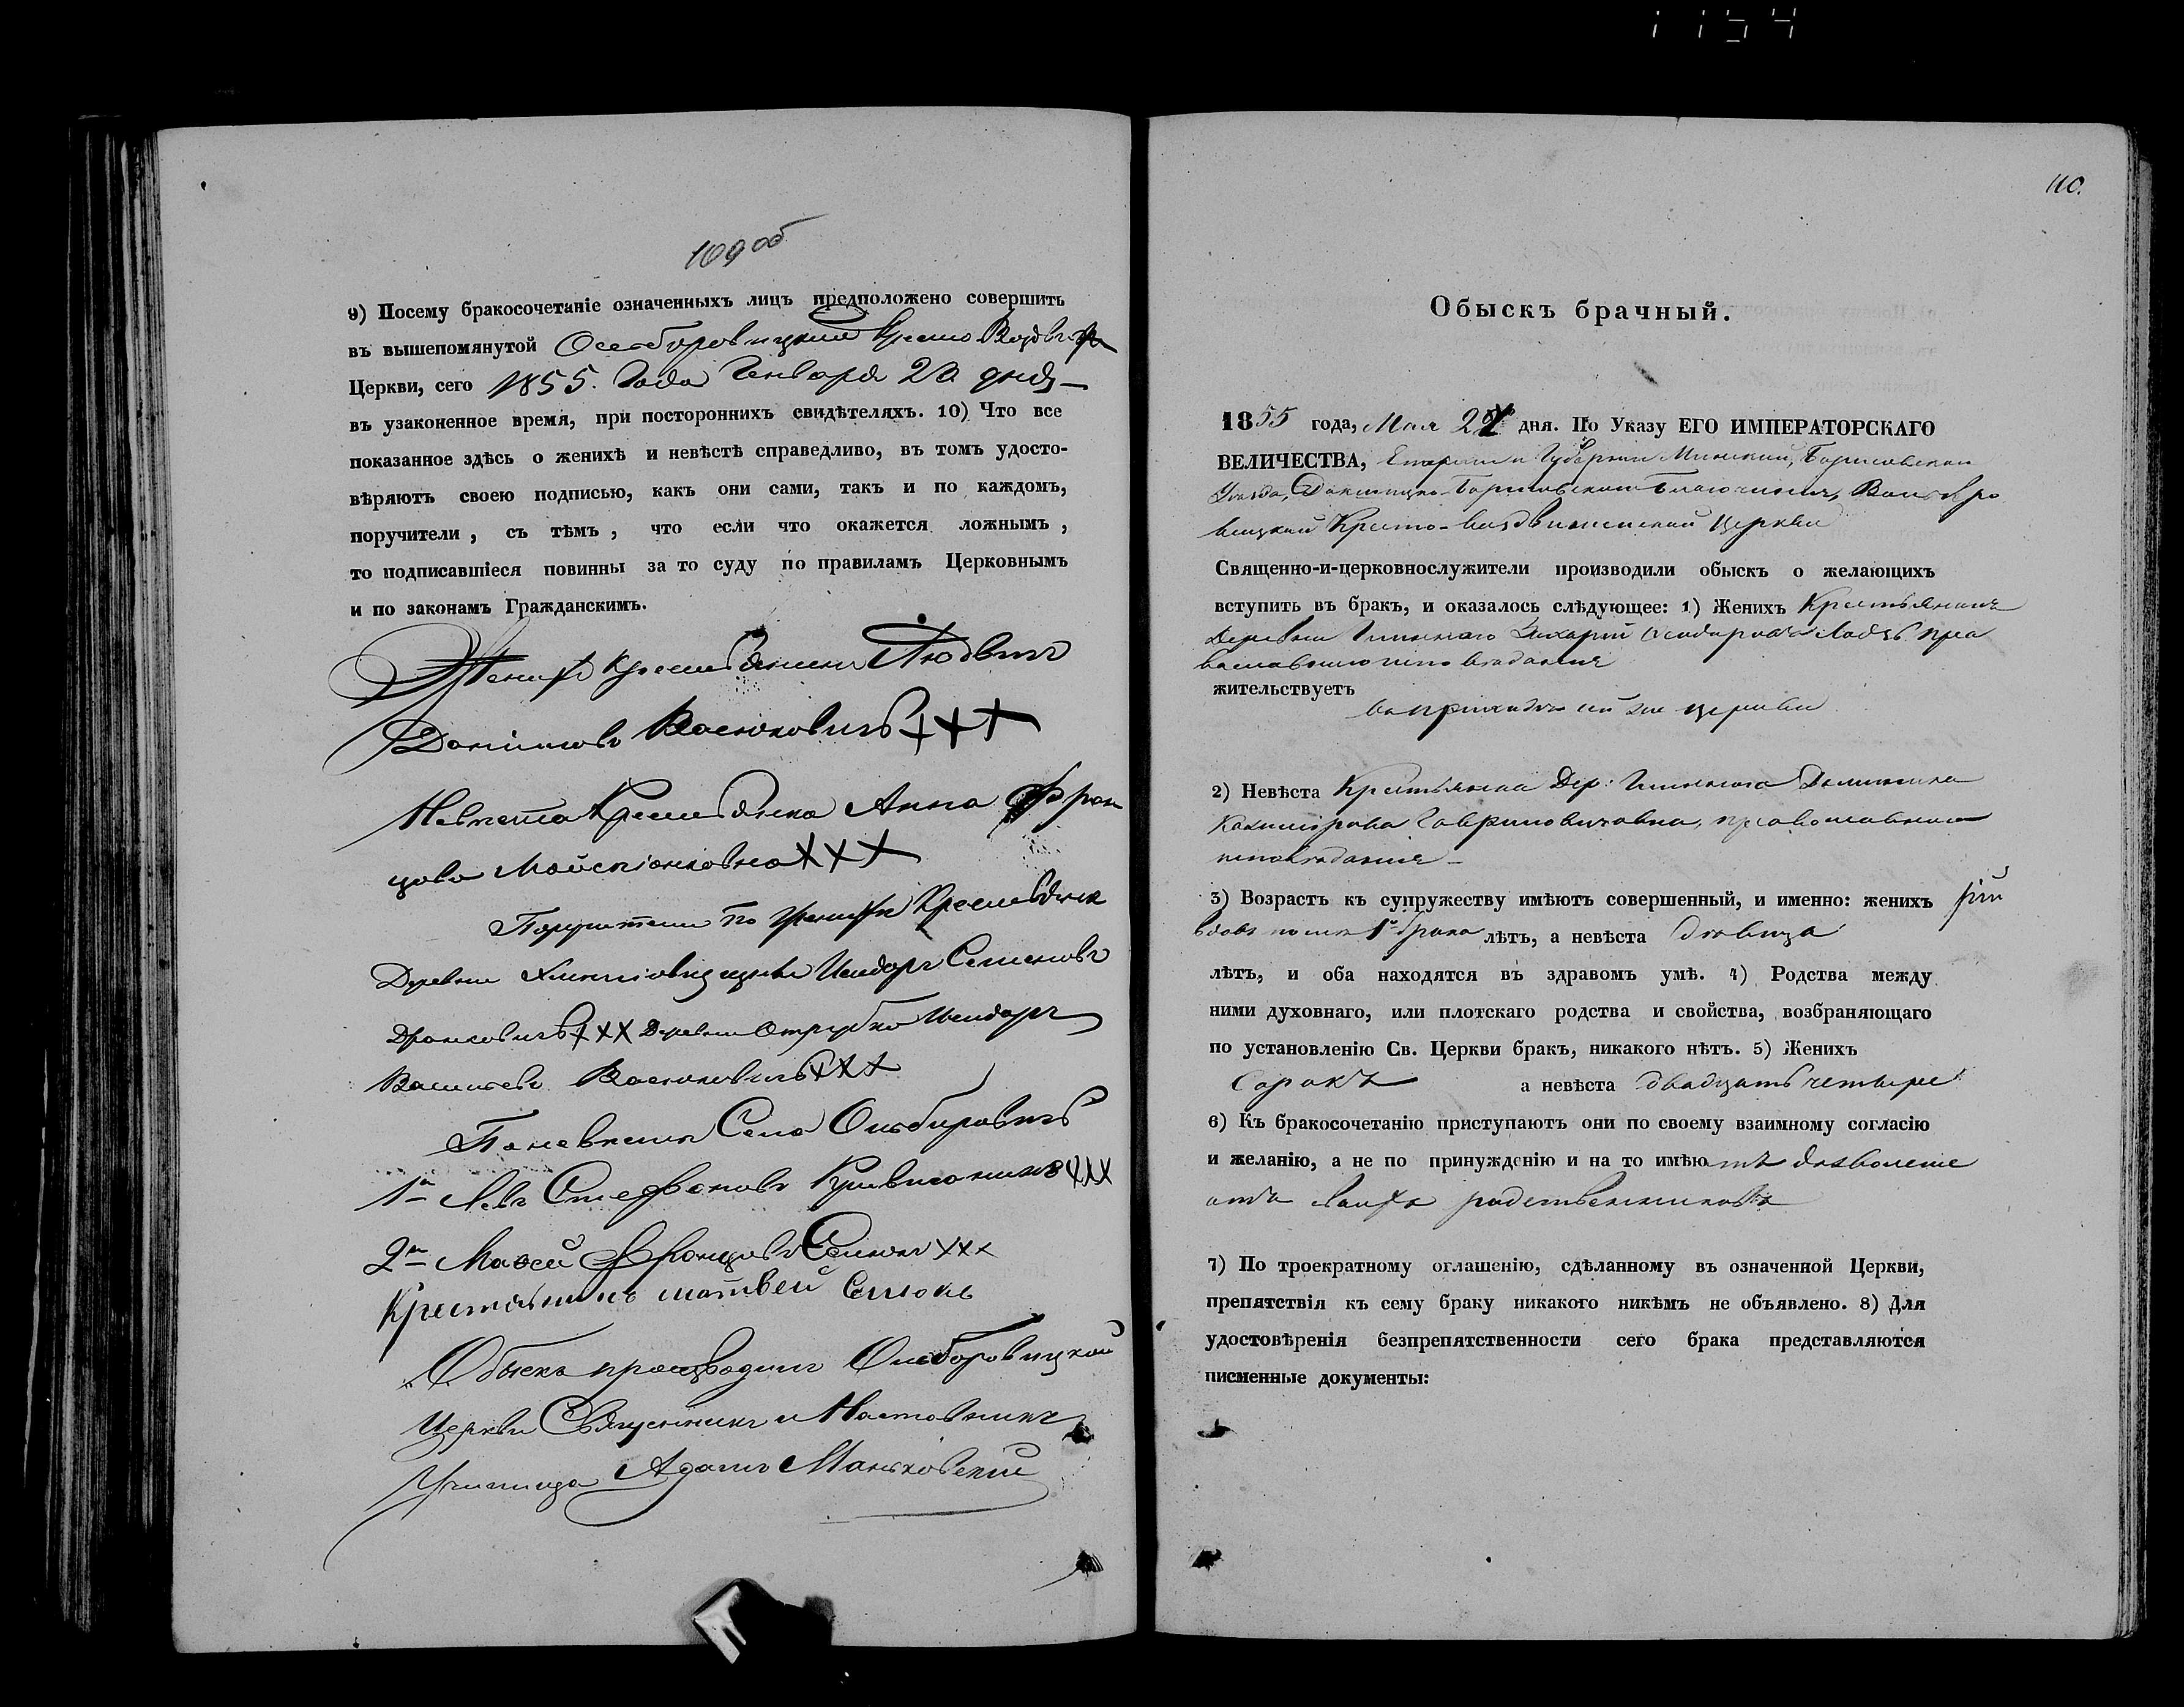 109 об
9) Посему бракосочетаніе означенныхъ лицъ предположено совершить
въ вышепомянутой
Церкви, сего 1855. Года Генваря 23 дня
въ узаконенное время, при постороннихъ свидѣтеляхъ. 10) Что все
показанное здѣсь о женихѣ и невѣстѣ справедливо, въ томъ удосто-
вѣряютъ своею подписью, какъ они сами, такъ и по каждомъ,
поручители, съ тѣмъ, что если что окажется ложнымъ,
то подписавшіеся повинны за то суду по правиламъ Церковнымъ
и по законамъ Гражданскимъ.
Женихъ Крестьянинъ Людвигъ
Даніиловъ Васюковичь +++
Невѣста Крестьянка Анна Фран
цова XXX
Поручители по женихѣ Крестьяне
Деревни Исидоръ Семеновъ
XXX Деревни Отрубка Исидоръ
Васильевъ Васюковичь XXX
По невѣстѣ Села
1й Левъ Стефановъ XXX
2й Мовсей Францовъ XXX
Крестьянинъ Матвей
Обыскъ производилъ
Церкви Священникъ и Наставникъ
Училища Адамъ Маньковскій
110.
Обыскъ брачный.
1855 года, Мая дня. По Указу ЕГО ИМПЕРАТОРСКАГО
ВЕЛИЧЕСТВА, Епархіи и Губерніи Минской, Борисовскаго
Уѣзда, Докшицко-Борисовскаго Благочинія,
Кресто-воздвиженской Церкви
Священно-и-церковнослужители производили обыскъ о желающихъ
вступить въ бракъ, и оказалось слѣдующее: 1) Женихъ Крестьянинъ
Деревни Захарій пра
вославнаго исповѣданія
жительствуетъ
въ приходѣ сей же церкви
2) Невѣста Крестьянка Дер: Доминика
Казимірова Гавриловичовна, православнаго
исповѣданія
3) Возрастъ къ супружеству имѣютъ совершенный, и именно: женихъ
вдовъ послѣ 1го брака лѣтъ, а невѣста дѣвица
лѣтъ, и оба находятся въ здравомъ умѣ. 4) Родства между
ними духовнаго, или плотскаго родства и свойства, возбраняющаго
по установленію Св. Церкви бракъ, никакого нѣтъ. 5) Женихъ
Сорокъ а невѣста двадцать четыре
6) Къ бракосочетанію приступаютъ они по своему взаимному согласію
и желанію, а не по принужденію и на то имѣютъ дозволеніе
отъ своихъ родственниковъ
7) По троекратному оглашенію, сдѣланному въ означенной Церкви,
препятствія къ сему браку никакого никѣмъ не объявлено. 8) Для
удостовѣренія безпрепятственности сего брака представляются
писменные документы: